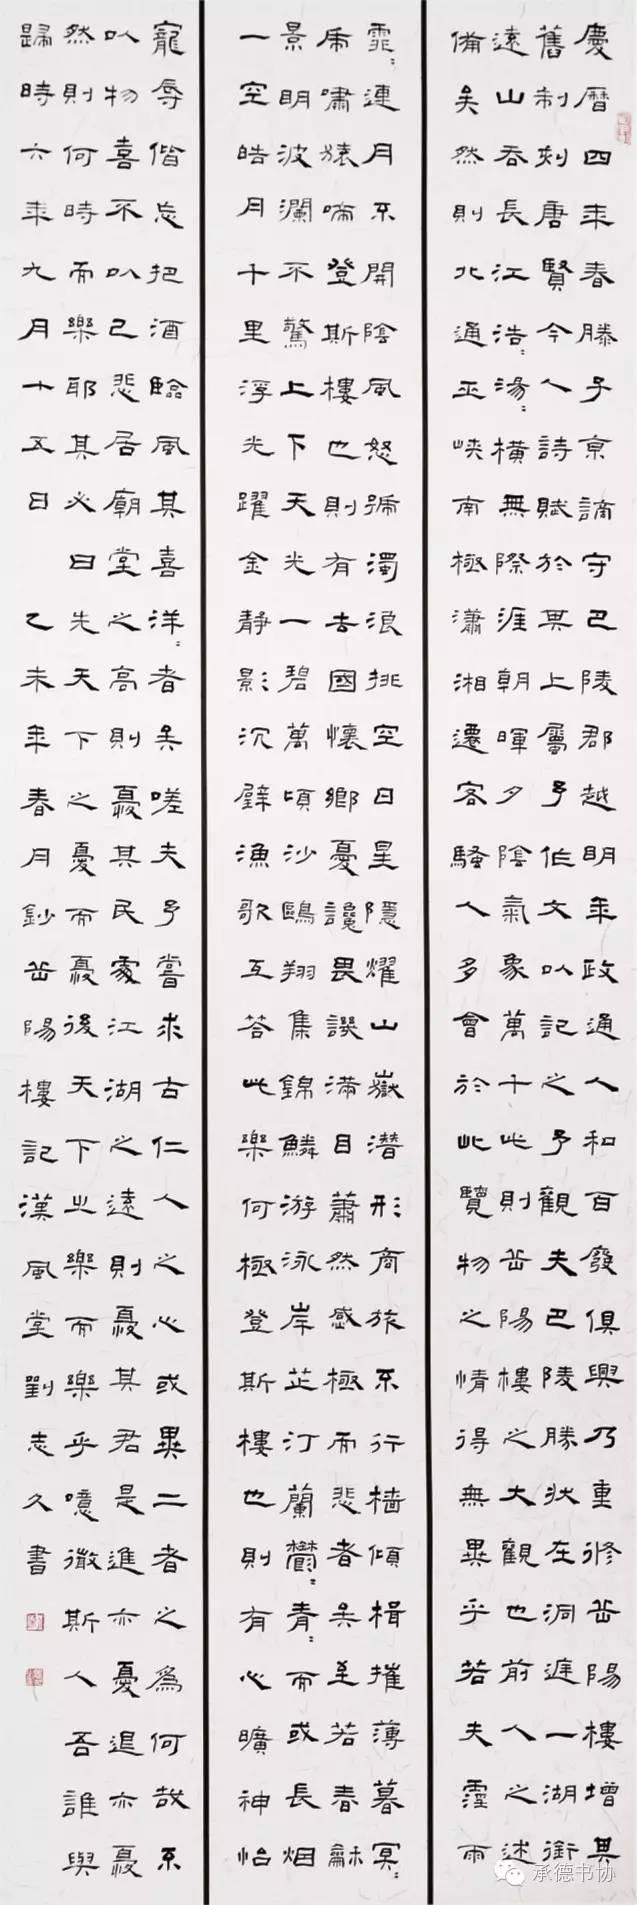 慶曆四年春滕子京謫守巴陵郡越明年政通人和百廢俱興乃重修岳陽樓增其
舊制刻唐賢今人詩賦於其上屬予作文以記之予觀夫巴陵勝狀在洞庭一湖銜
遠山吞長江浩〻湯〻橫無際涯朝暉夕陰氣象萬千此則岳陽樓之大觀也前人之述
備矣然則北通巫峽南極瀟湘遷客騷人多會於此覽物之情得無異乎若夫霪雨
霏〻連月不開陰風怒號濁浪排空日星隱耀山嶽潛形商旅不行檣傾楫摧薄暮冥〻
虎嘯猿啼登斯樓也則有去國懷鄉憂讒畏譏滿目蕭然感極而悲者矣至若春龢
景明波瀾不驚上下天光一碧萬頃沙鷗翔集錦鱗游泳岸芷汀蘭鬱〻青〻而或長烟
一空皓月千里浮光躍金靜影沉璧漁歌互答此樂何極登斯樓也則有心曠神怡
寵辱偕忘把酒臨風其喜洋〻者矣嗟夫予嘗求古仁人之心或異二者之為何哉不
以物喜不以己悲居廟堂之高則憂其民處江湖之遠則憂其君是進亦憂退亦憂
然則何時而樂耶其必曰先天下之憂而憂後天下之樂而樂乎噫微斯人吾誰與
歸時六年九月十五日 乙未年春月鈔岳陽樓記漢風堂劉志久書
承德书协